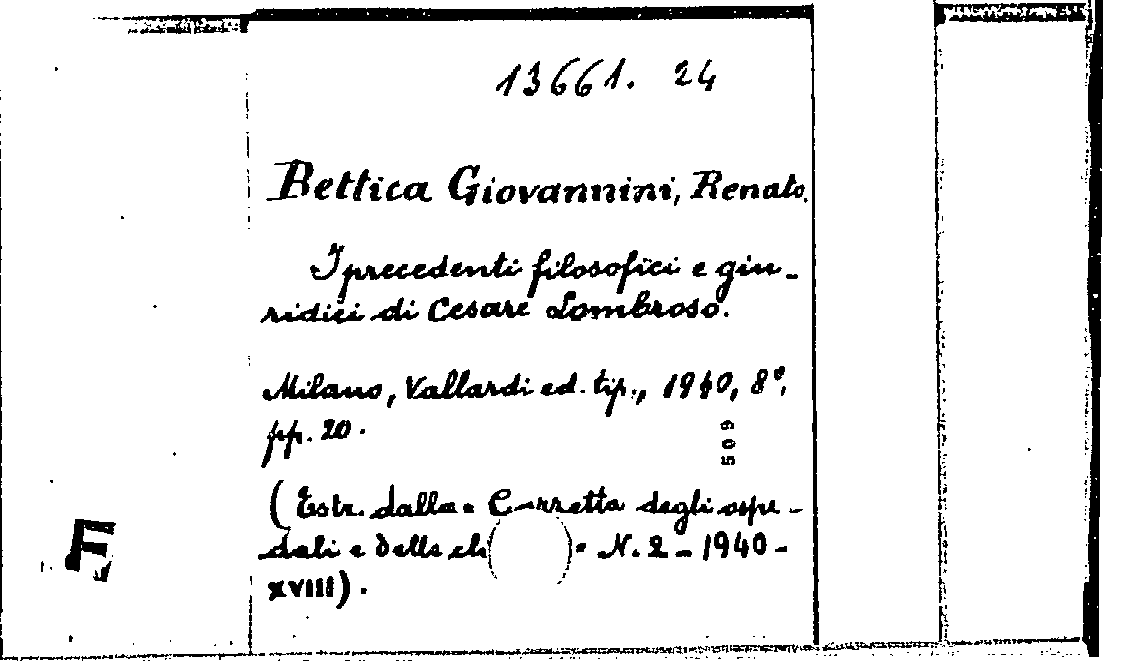 13661. 24
Bettica Giovannini, Renato.
I precedenti filosofici e giu-
ridici di Cesare Lombroso.
Milano, Vallardi ed. tip., 1940, 8º,
pp. 20.
509
(Estr. dalla " Gazzetta degli ospe-
dali e delle cli " N. 2 - 1940 -
XVIII).
F